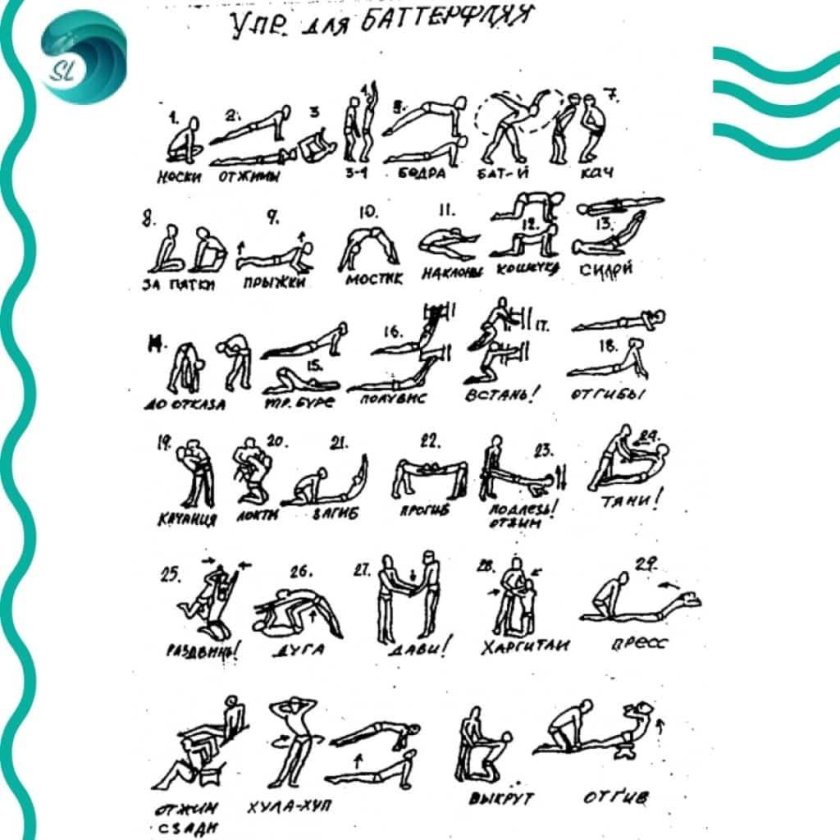 УПР. ДЛЯ БАТТЕРФЛЯЯ
SL
1. 2. 3 5. 7.
НОСКИ ОТЖИМЫ 3-1 БЕДРА БАТ-Й КАЧ
8. 9. 10. 11. 12. 13.
ЗА ПЯТКИ ПРЫЖКИ МОСТИК НАКЛОНЫ КОШЕЧКА
14. 15. 16. 17. 18.
ДО ОТКАЗА ТР. БУРЕ ПОЛУВИС ВСТАНЬ! ОТГИБЫ
19. 20. 21. 22. 23. 24.
КАЧАНИЯ ЛОКТИ ЗАГИБ ПРОГИБ ПОДЛЕЗЬ! ТЯНИ!
ОТЖИМ
25. 26. 27. 28. 29.
РАЗДВИНЬ! ДУГА ДАВИ! ХАРГИТАИ ПРЕСС
ОТЖИМ ХУЛА-ХУП ВЫКРУТ ОТГИБ
СЗАДИ